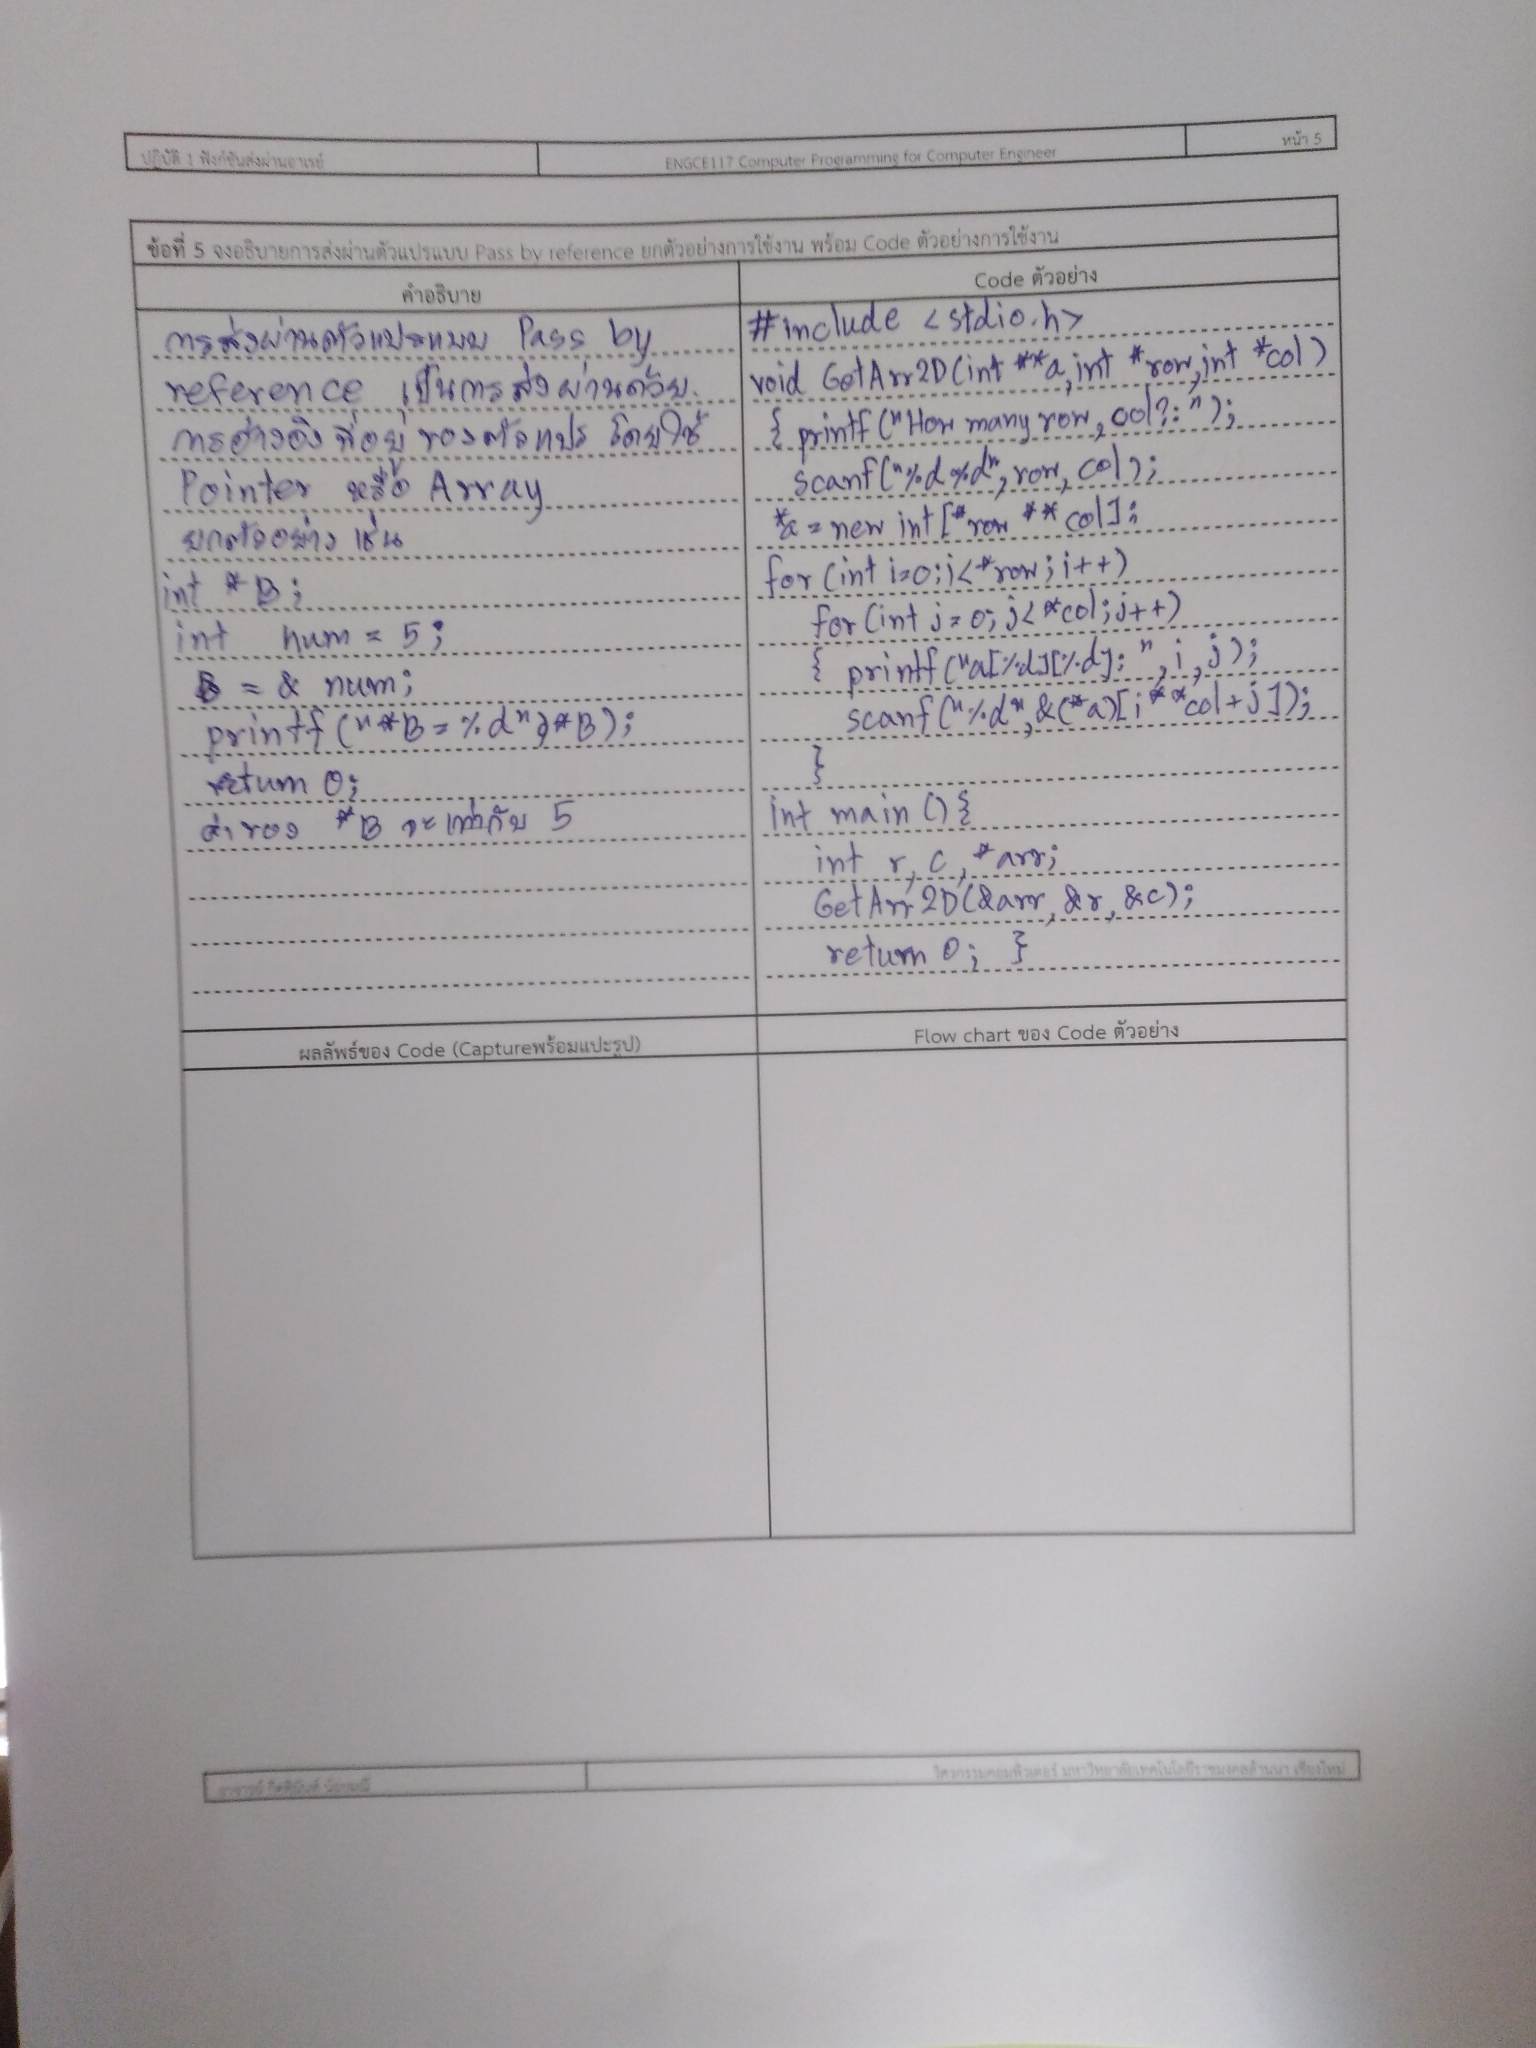 ปฏิบัติ 1 ฟังก์ชันส่งผ่านอาเรย์
ENGCE117 Computer Programming for Computer Engineer
หน้า 5
ข้อที่ 5 จงอธิบายการส่งผ่านตัวแปรแบบ Pass by reference ยกตัวอย่างการใช้งาน พร้อม Code ตัวอย่างการใช้งาน
คำอธิบาย
การส่งผ่านตัวแปรแบบ Pass by
reference เป็นการส่งผ่านด้วย
การอ้างอิงที่อยู่ของตัวแปร โดยใช้
Pointer หรือ Array
ยกตัวอย่าง เช่น
int *B;
int num = 5;
B = & num;
printf("*B = %d",*B);
return 0;
ค่าของ *B จะเท่ากับ 5
Code ตัวอย่าง
#include <stdio.h>
void GetArr2D(int **a,int *row,int *col)
{ printf("How many row, col?:");
scanf("%d %d",row, col);
*a = new int[*row ** col];
for(int i=0;i<*row;i++)
for(int j=0;j<*col;j++)
{ printf("a[%d][%d]: ",i,j);
scanf("%d",&(*a)[i**col+j]);
}
}
int main(){
int r, c, *arr;
GetArr2D(&arr, &r, &c);
return 0; }
ผลลัพธ์ของ Code (Captureพร้อมแปะรูป)
Flow chart ของ Code ตัวอย่าง
วิศวกรรมคอมพิวเตอร์ มหาวิทยาลัยเทคโนโลยีราชมงคลล้านนา เชียงใหม่